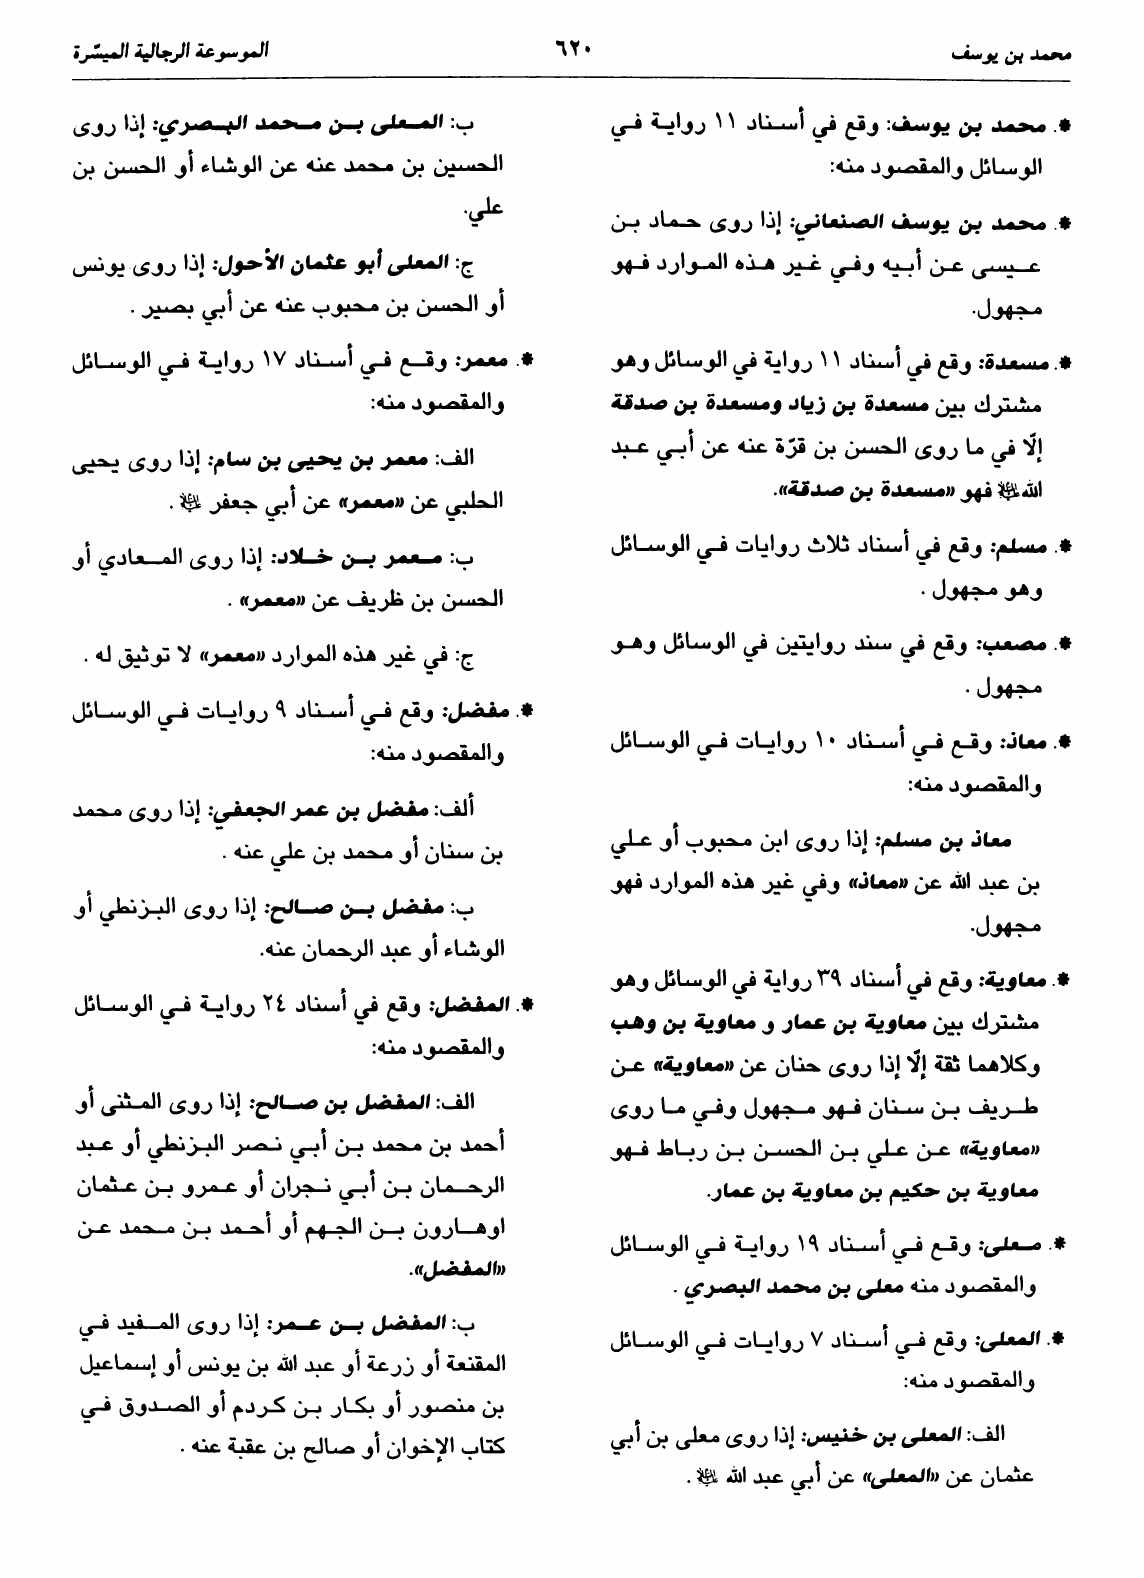 محمد بن يوسف ٦٢٠ الموسوعة الرجالية الميسّرة
*. محمد بن يوسف: وقع في أسناد ١١ رواية في
الوسائل والمقصود منه:
*. محمد بن يوسف الصنعاني: إذا روى حماد بن
عيسى عن أبيه وفي غير هذه الموارد فهو
مجهول.
*. مسعدة: وقع في أسناد ١١ رواية في الوسائل وهو
مشترك بين مسعدة بن زياد ومسعدة بن صدقة
إلّا في ما روى الحسن بن قرّة عنه عن أبي عبد
الله ﷺ فهو «مسعدة بن صدقة».
*. مسلم: وقع في أسناد ثلاث روايات في الوسائل
وهو مجهول .
*. مصعب: وقع في سند روايتين في الوسائل وهو
مجهول .
*. معاذ: وقع في أسناد ١٠ روايات في الوسائل
والمقصود منه:
معاذ بن مسلم: إذا روى ابن محبوب أو علي
بن عبد الله عن «معاذ» وفي غير هذه الموارد فهو
مجهول.
*. معاوية: وقع في أسناد ٣٩ رواية في الوسائل وهو
مشترك بين معاوية بن عمار و معاوية بن وهب
وكلاهما ثقة إلّا إذا روى حنان عن «معاوية» عن
طريف بن سنان فهو مجهول وفي ما روى
«معاوية» عن علي بن الحسن بن رباط فهو
معاوية بن حكيم بن معاوية بن عمار.
*. معلى: وقع في أسناد ١٩ رواية في الوسائل
والمقصود منه معلى بن محمد البصري .
*. المعلى: وقع في أسناد ٧ روايات في الوسائل
والمقصود منه:
الف: المعلى بن خنيس: إذا روى معلى بن أبي
عثمان عن «المعلى» عن أبي عبد الله ﷺ .
ب: المعلى بن محمد البصري: إذا روى
الحسين بن محمد عنه عن الوشاء أو الحسن بن
علي.
ج: المعلى أبو عثمان الأحول: إذا روى يونس
أو الحسن بن محبوب عنه عن أبي بصير .
*. معمر: وقع في أسناد ١٧ رواية في الوسائل
والمقصود منه:
الف: معمر بن يحيى بن سام: إذا روى يحيى
الحلبي عن «معمر» عن أبي جعفر ﷺ .
ب: معمر بن خلاد: إذا روى المعادي أو
الحسن بن ظريف عن «معمر» .
ج: في غير هذه الموارد «معمر» لا توثيق له .
*. مفضل: وقع في أسناد ٩ روايات في الوسائل
والمقصود منه:
ألف: مفضل بن عمر الجعفي: إذا روى محمد
بن سنان أو محمد بن علي عنه .
ب: مفضل بن صالح: إذا روى البزنطي أو
الوشاء أو عبد الرحمان عنه.
*. المفضل: وقع في أسناد ٢٤ رواية في الوسائل
والمقصود منه:
الف: المفضل بن صالح: إذا روى المثنى أو
أحمد بن محمد بن أبي نصر البزنطي أو عبد
الرحمان بن أبي نجران أو عمرو بن عثمان
اوهارون بن الجهم أو أحمد بن محمد عن
«المفضل».
ب: المفضل بن عمر: إذا روى المفيد في
المقنعة أو زرعة أو عبد الله بن يونس أو إسماعيل
بن منصور أو بكار بن كردم أو الصدوق في
كتاب الإخوان أو صالح بن عقبة عنه .